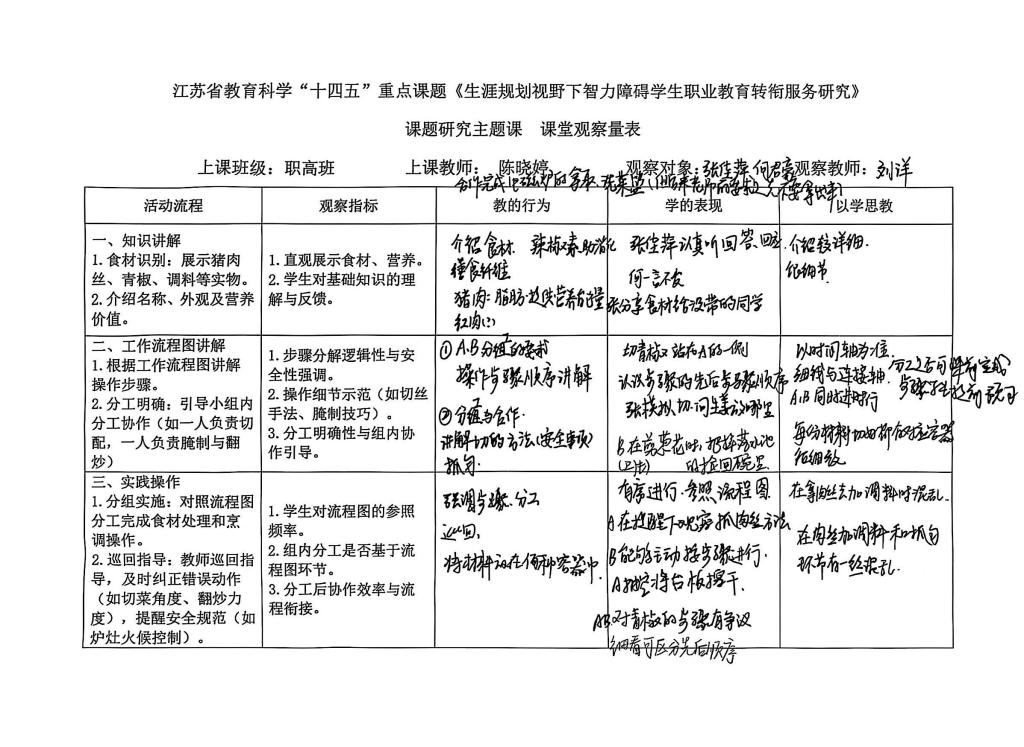 江苏省教育科学“十四五”重点课题《生涯规划视野下智力障碍学生职业教育转衔服务研究》
课题研究主题课 课堂观察量表
上课班级：职高班 上课教师：陈晓婷 观察对象：张佳萍 何君亮 观察教师：刘洋
活动流程 观察指标 教的行为 学的表现 以学思教
一、知识讲解
1.食材识别：展示猪肉
丝、青椒、调料等实物。
2.介绍名称、外观及营养
价值。
1.直观展示食材、营养。
2.学生对基础知识的理
解与反馈。
介绍食材. 辣椒素助消化
膳食纤维
猪肉：脂肪.提供营养能量
红肉
张佳萍认真听回答.回应
何一言不发
张分享食材给没带的同学
介绍较详细.
很细节.
二、工作流程图讲解
1.根据工作流程图讲解
操作步骤。
2.分工明确：引导小组内
分工协作（如一人负责切
配，一人负责腌制与翻
炒）
1.步骤分解逻辑性与安
全性强调。
2.操作细节示范（如切丝
手法、腌制技巧）。
3.分工明确性与组内协
作引导。
①A.B分工的要求
操作步骤顺序讲解
②分工与合作.
讲解切的方法（安全事项）
抓匀.
切青椒又站在A的一侧
认识步骤的先后步骤顺序
张模拟切.问生姜放哪里
B在剪葱花时，把掉落水池
的捡回碗里
以时间轴为准.
细线与连接轴.
A.B同时进行
每份材料切好都有对应容器
很细致
三、实践操作
1.分组实施：对照流程图
分工完成食材处理和烹
调操作。
2.巡回指导：教师巡回指
导，及时纠正错误动作
（如切菜角度、翻炒力
度），提醒安全规范（如
炉灶火候控制）。
1.学生对流程图的参照
频率。
2.组内分工是否基于流
程图环节。
3.分工后协作效率与流
程衔接。
强调步骤.分工
巡回.
将材料放在何种容器中.
有序进行.参照流程图
A在提醒下观察抓肉丝方法
B能够主动按步骤进行.
A抽空将台板擦干.
AB对青椒的步骤有争议
细看可区分先后顺序
在拿肉丝去加调料时混乱.
在肉丝加调料和抓匀
环节有一丝混乱.